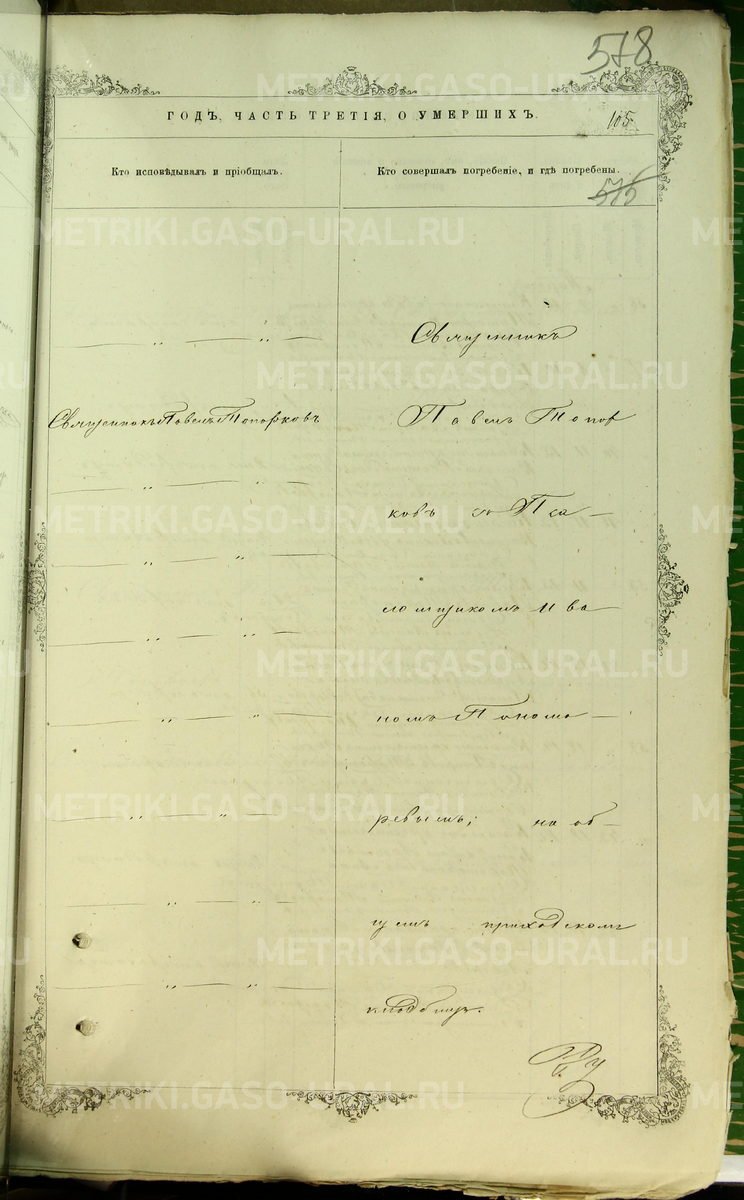 578
ГОДЪ, ЧАСТЬ ТРЕТІЯ, О УМЕРШИХЪ.
105
Кто исповѣдывалъ и пріобщалъ.
Кто совершалъ погребеніе, и гдѣ погребены.
575
METRIKI.GASO-URAL.RU
Священникъ
Священникъ Павелъ Топорковъ
Павелъ Топор
ковъ съ Пса–
ломщикомъ Ива–
номъ Понома–
ревымъ; на об–
щемъ приходскомъ
кладбищѣ.